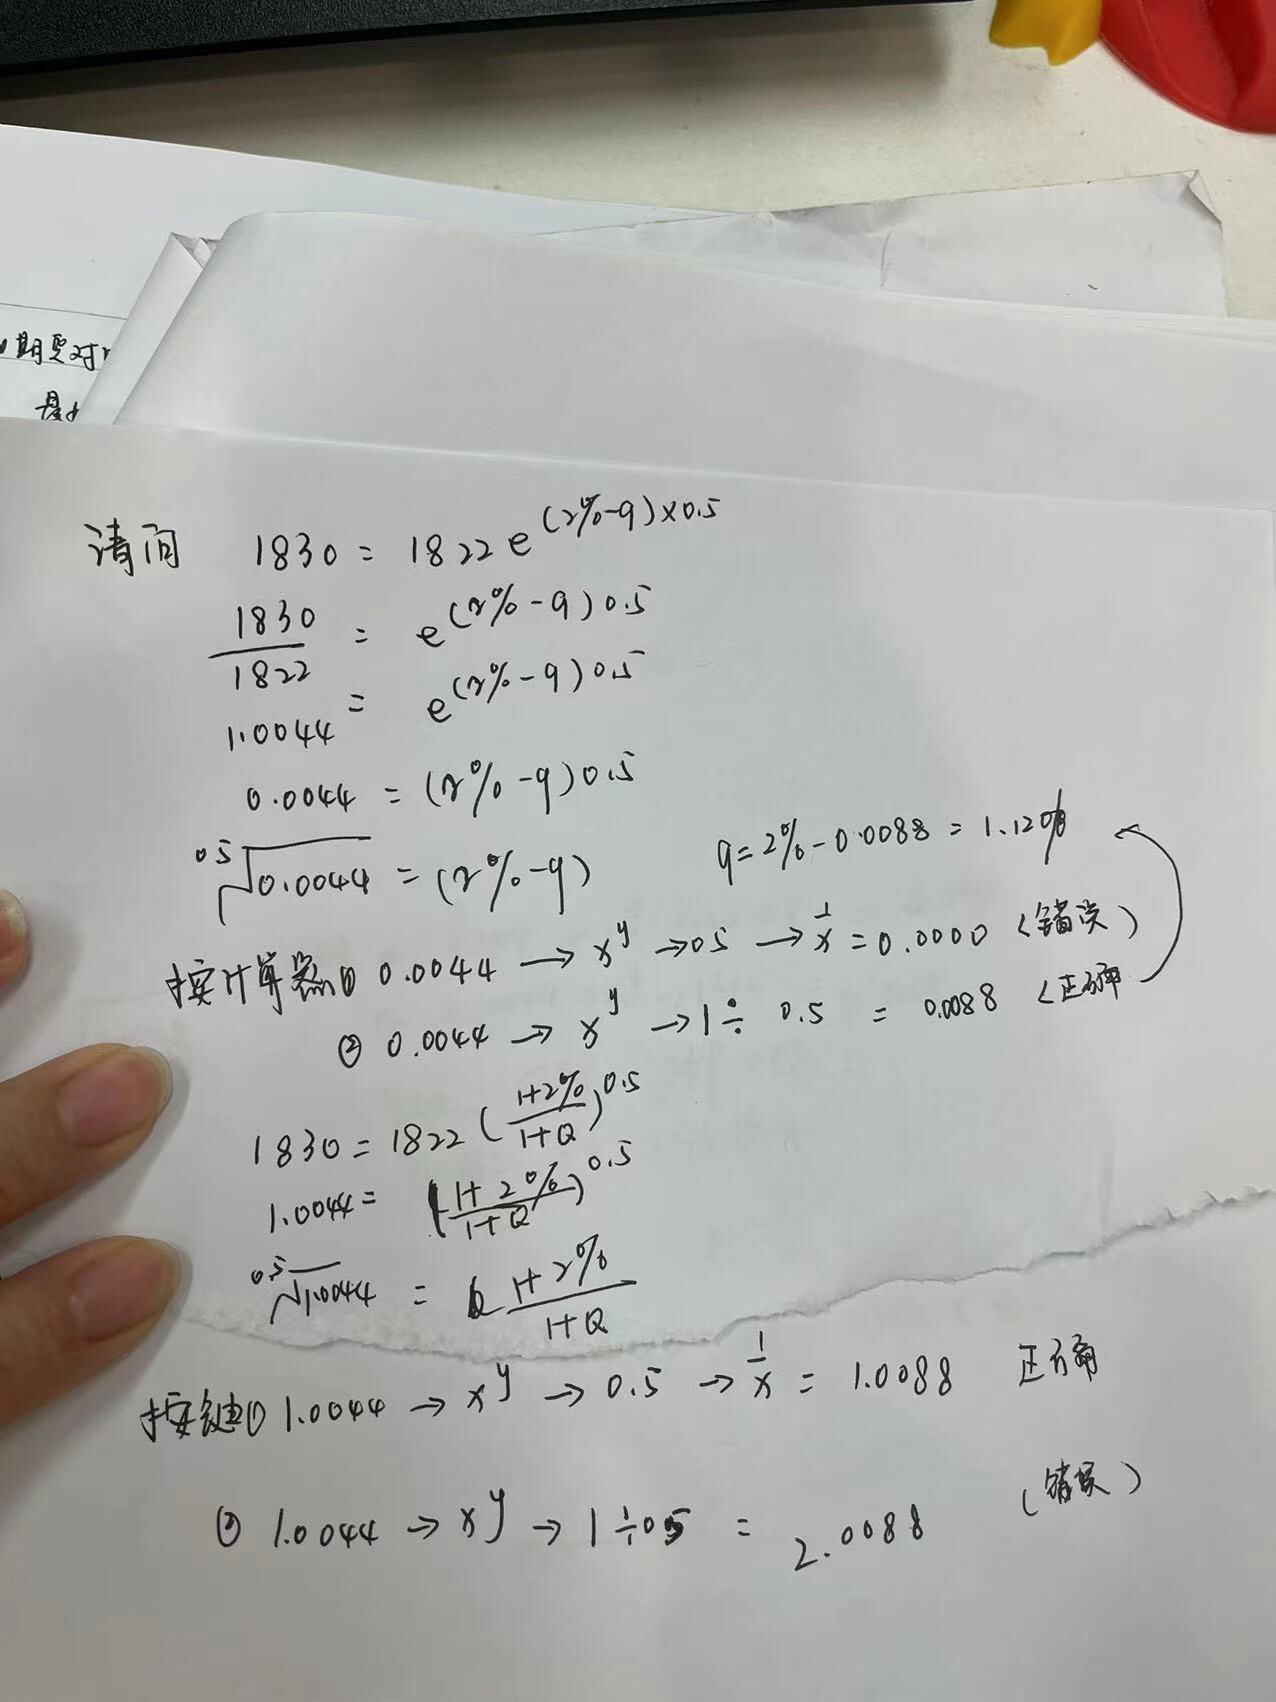 期受对
请问 1830 = 1822 e^(2%-q)×0.5
1830/1822 = e^(2%-q)0.5
1.0044 = e^(2%-q)0.5
0.0044 = (2%-q)0.5
0.5√0.0044 = (2%-q)
q=2%-0.0088 = 1.12%
按计算器① 0.0044 → x^y → 0.5 → 1/x = 0.0000 (错误)
② 0.0044 → x^y → 1÷ 0.5 = 0.0088 (正确
1830 = 1822 ((1+2%)/(1+Q))^0.5
1.0044 = ((1+2%)/(1+Q))^0.5
0.5√1.0044 = (1+2%)/(1+Q)
按键① 1.0044 → x^y → 0.5 → 1/x = 1.0088 正确
② 1.0044 → x^y → 1÷0.5 = 2.0088 (错误)